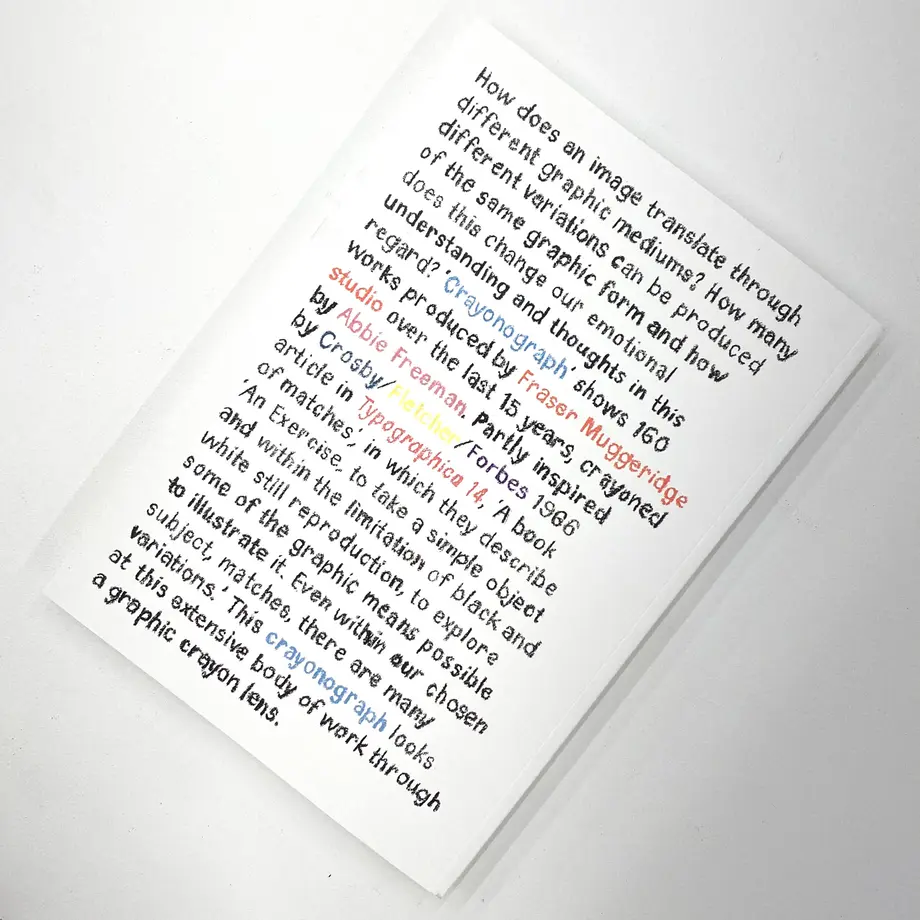 How does an image translate through
different graphic mediums? How many
different variations can be produced
of the same graphic form and how
does this change our emotional
understanding and thoughts in this
regard? 'Crayonograph' shows 160
works produced by Fraser Muggeridge
studio over the last 15 years, crayoned
by Abbie Freeman. Partly inspired
by Crosby/Fletcher/Forbes 1966
article in Typographica 14, 'A book
of matches,' in which they describe
'An Exercise, to take a simple object
and within the limitation of black and
white still reproduction, to explore
some of the graphic means possible
to illustrate it. Even within our chosen
subject, matches, there are many
variations.' This crayonograph looks
at this extensive body of work through
a graphic crayon lens.